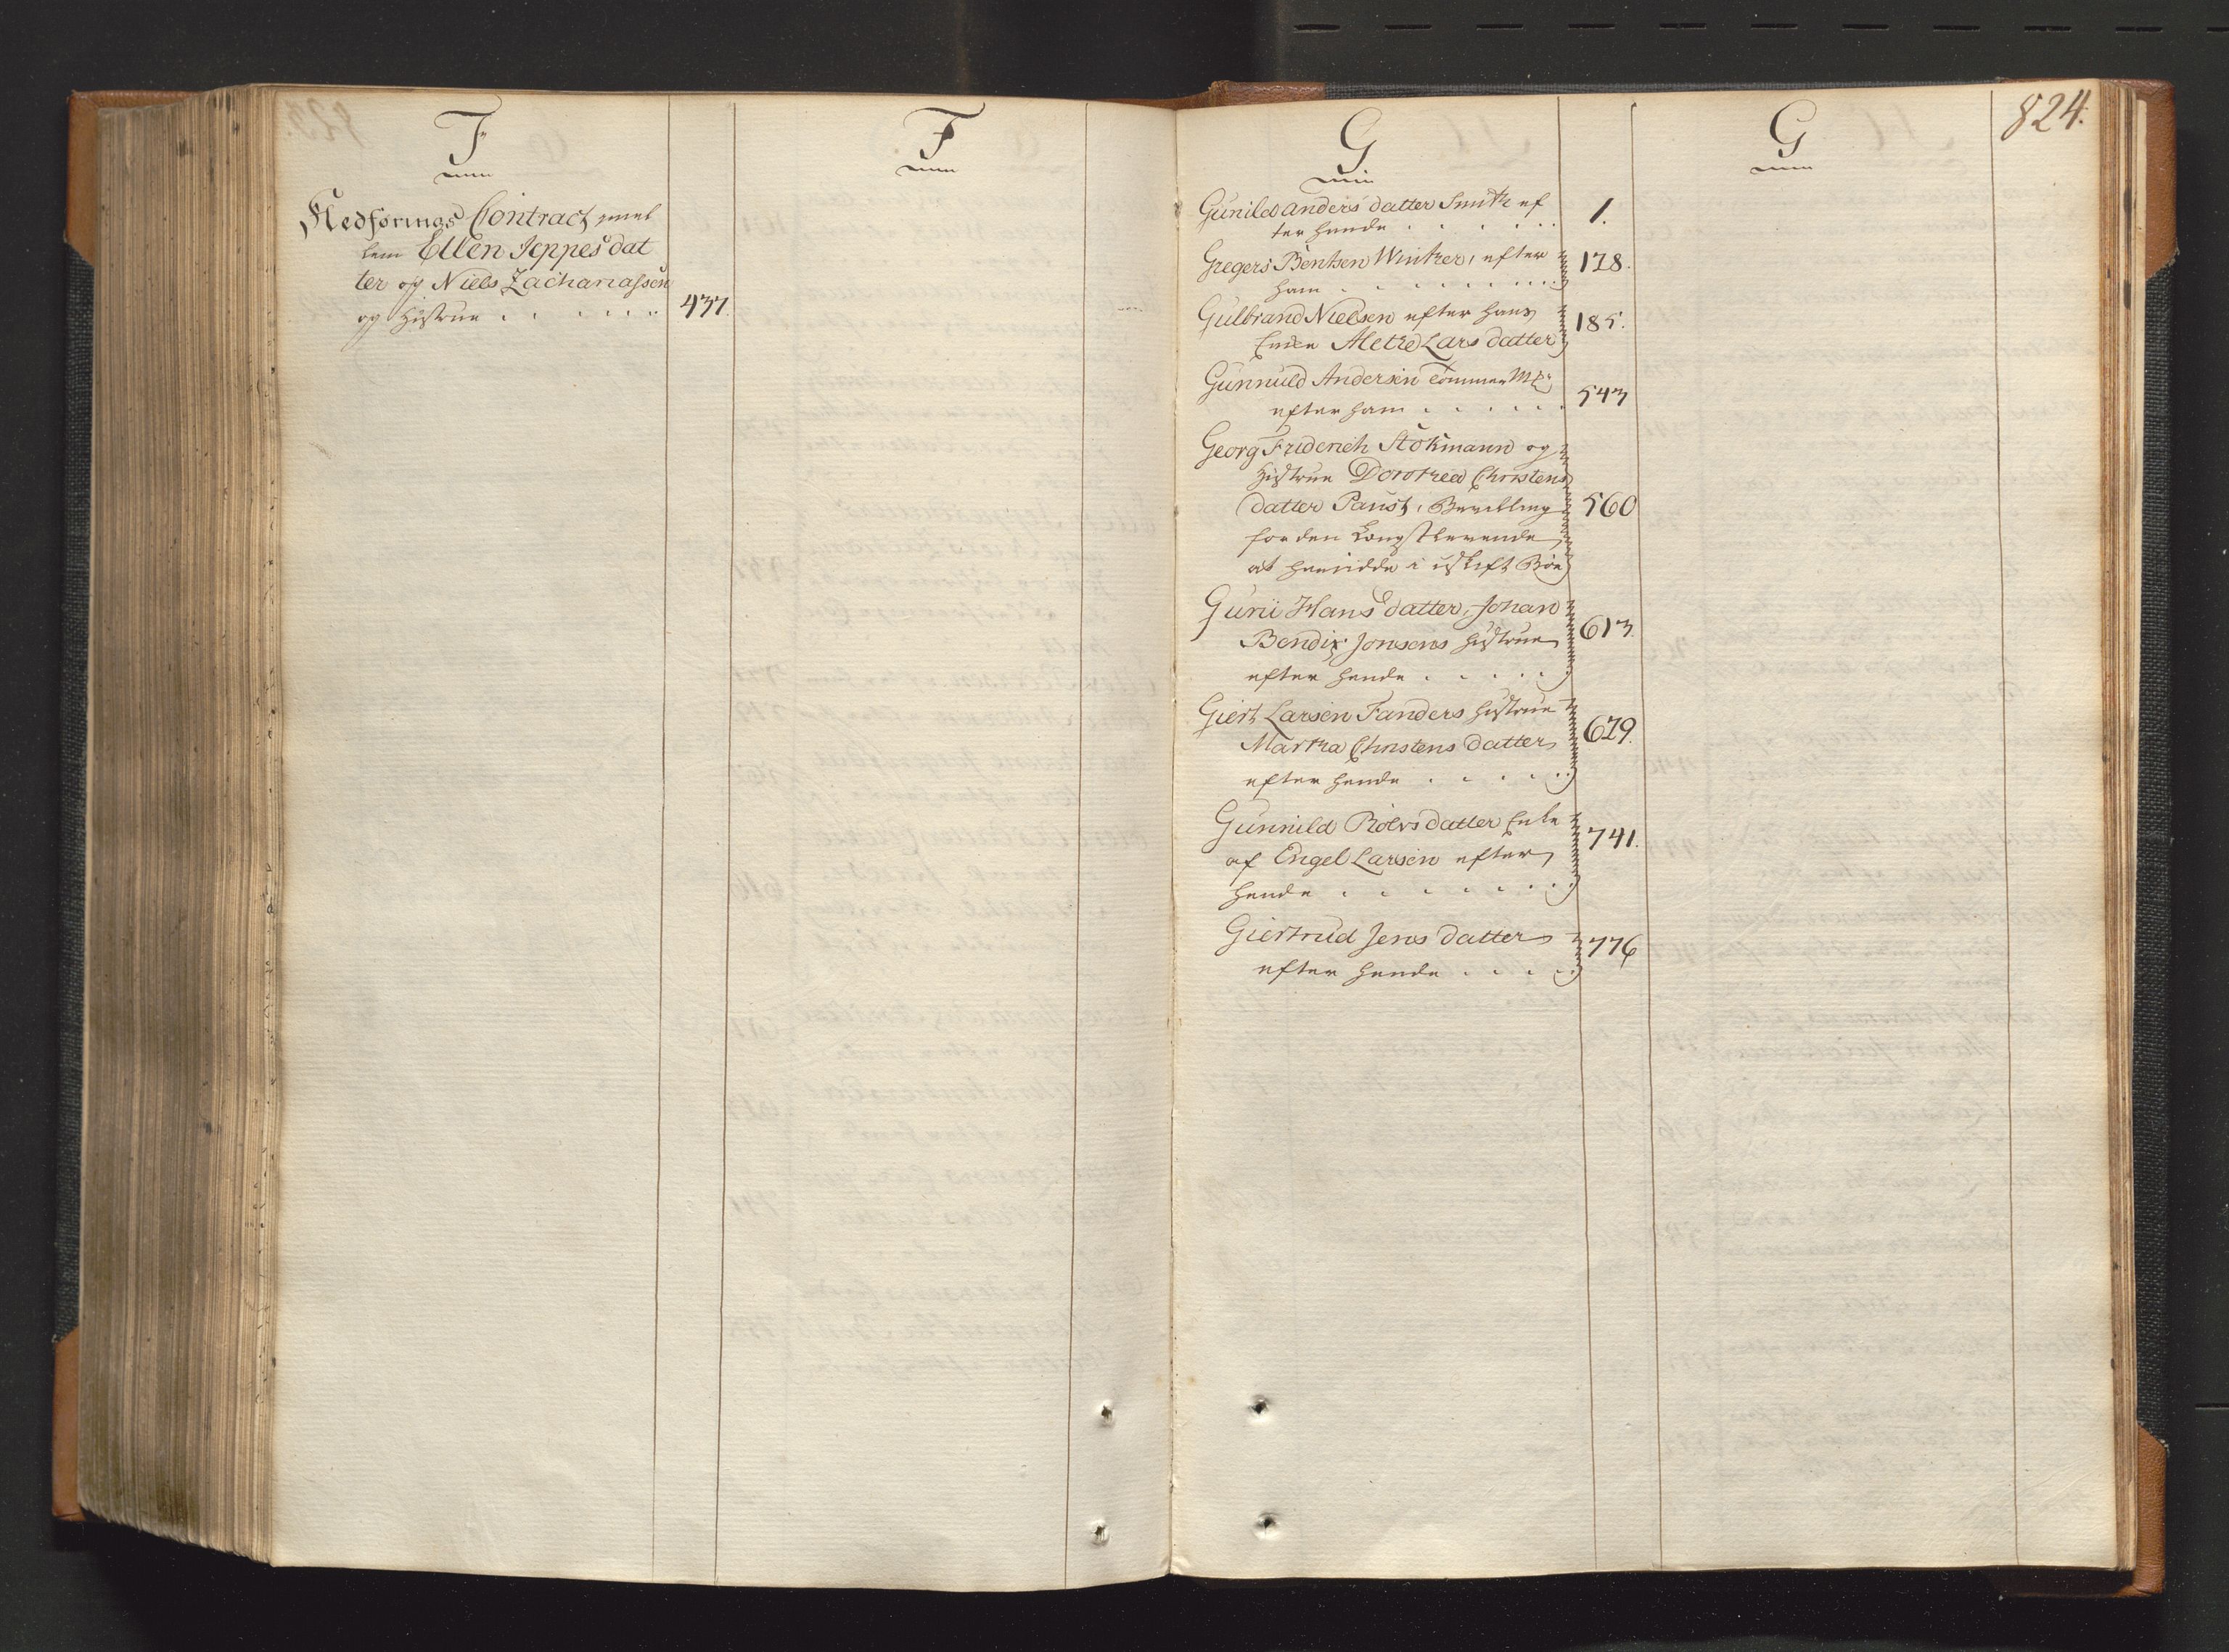 F
F
Fledførings Contract imel
lem Ellen Jeppes dat
ter og Niels Zachariassen
og Hustrue . . . . . . 437.
G
G
824.
Gunild Anders datter Smith ef
ter hende . . . . . . 1.
Gregers Bentsen Winther, efter
ham . . . . . . . . . 178.
Gulbrand Nielsen efter hans
Enke Mette Lars datter 185.
Gunnuld Andersen Tømmer Mr.
efter ham . . . . . . 543
Georg Friderich Stokmann og
Hustrue Dorothea Christens
datter Paust, Bevilling 560
for den Længstlevende
at hensidde i uskift Boe
Guru Hans datter, Johan
Bendix Jonsens Hustrue 613.
efter hende . . . . .
Giert Larsen Fanders Hustrue
Martha Christens datter 679.
efter hende . . . . .
Gunnild Rolvs datter Enke
af Engel Larsen efter 741.
hende . . . . . . . .
Giertrud Jens datter 776
efter hende . . . . .